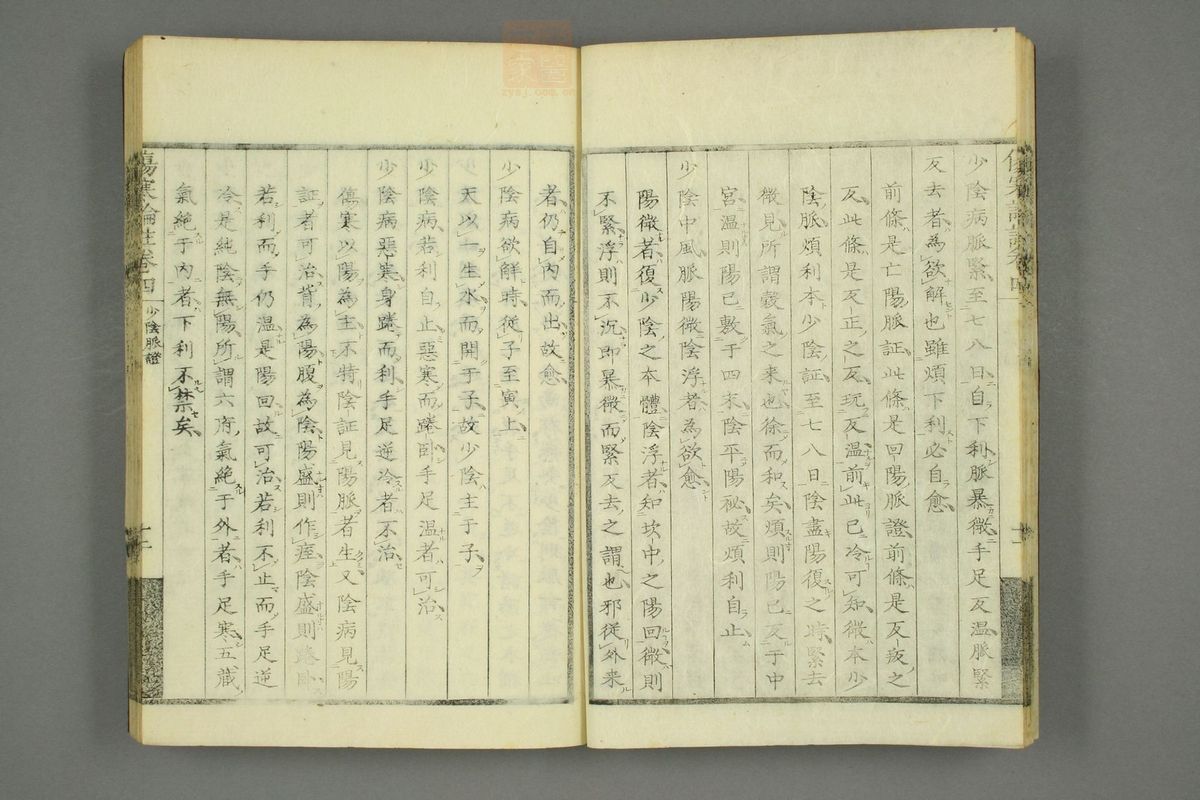 少陰病脈緊至七八日自下利脈暴微手足反温脈緊
反去者為欲解也雖煩下利必自愈
前條是亡陽脈証此條是回陽脈證前條是反叛之
反此條是反正之反玩反温前此已冷可知微本少
陰脈煩利本少陰証至七八日陰盡陽復之時緊去
微見所謂穀氣之来也徐而和矣煩則陽已反于中
宮温則陽已敷于四末陰平陽祕故煩利自止
少陰中風脈陽微陰浮者為欲愈
陽微者復少陰之本體陰浮者知坎中之陽回微則
不緊浮則不沉即暴微而緊反去之謂也邪從外来
者仍自内而出故愈
少陰病欲解時從子至寅上
天以一生水而開于子故少陰主于子
少陰病若利自止惡寒而踡卧手足温者可治
少陰病惡寒身踡而利手足逆冷者不治
傷寒以陽為主不特陰証見陽脈者生又陰病見陽
証者可治背為陽腹為陰陽盛則作痓陰盛則踡卧
若利而手仍温是陽回故可治若利不止而手足逆
冷是純陰無陽所謂六府氣絶于外者手足寒五藏
氣絶于内者下利不禁矣
傷寒論註卷四
少陰脈證